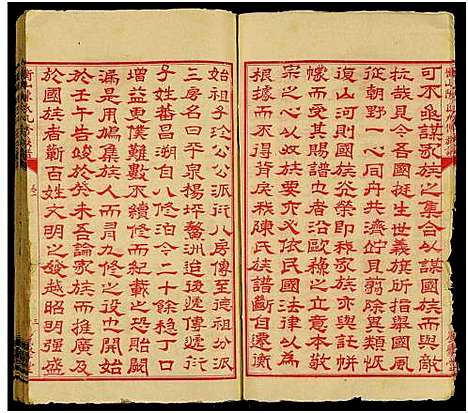 可不亟謀家族之集合以謀國族而與敵
抗哉且今各國挺生世義旗所指舉國風
從朝野一心同舟共濟貯且翦除異類恢
復山河則國族光榮即移家族亦與託帡
幪而受其賜譜也者沿歐穆之立意本敬
宗之心以為之亦必依民國法律以為
根據然不得背戾我陳氏族譜斷自遠衡
始祖子玠公公派衍八房傳至德祖分派
三房名曰平泉楊坪鰲洲迨後遞傳遞衍
子姓蕃昌湖自八修迨今二十餘稔丁口
增益更僕難數不續修而紀載之恐貽闕
漏是用鳩集族人而有九修之設也開始
於壬午告竣於癸未吾論家族而推廣及
於國族者蘄百姓大明之發越昭明強盛